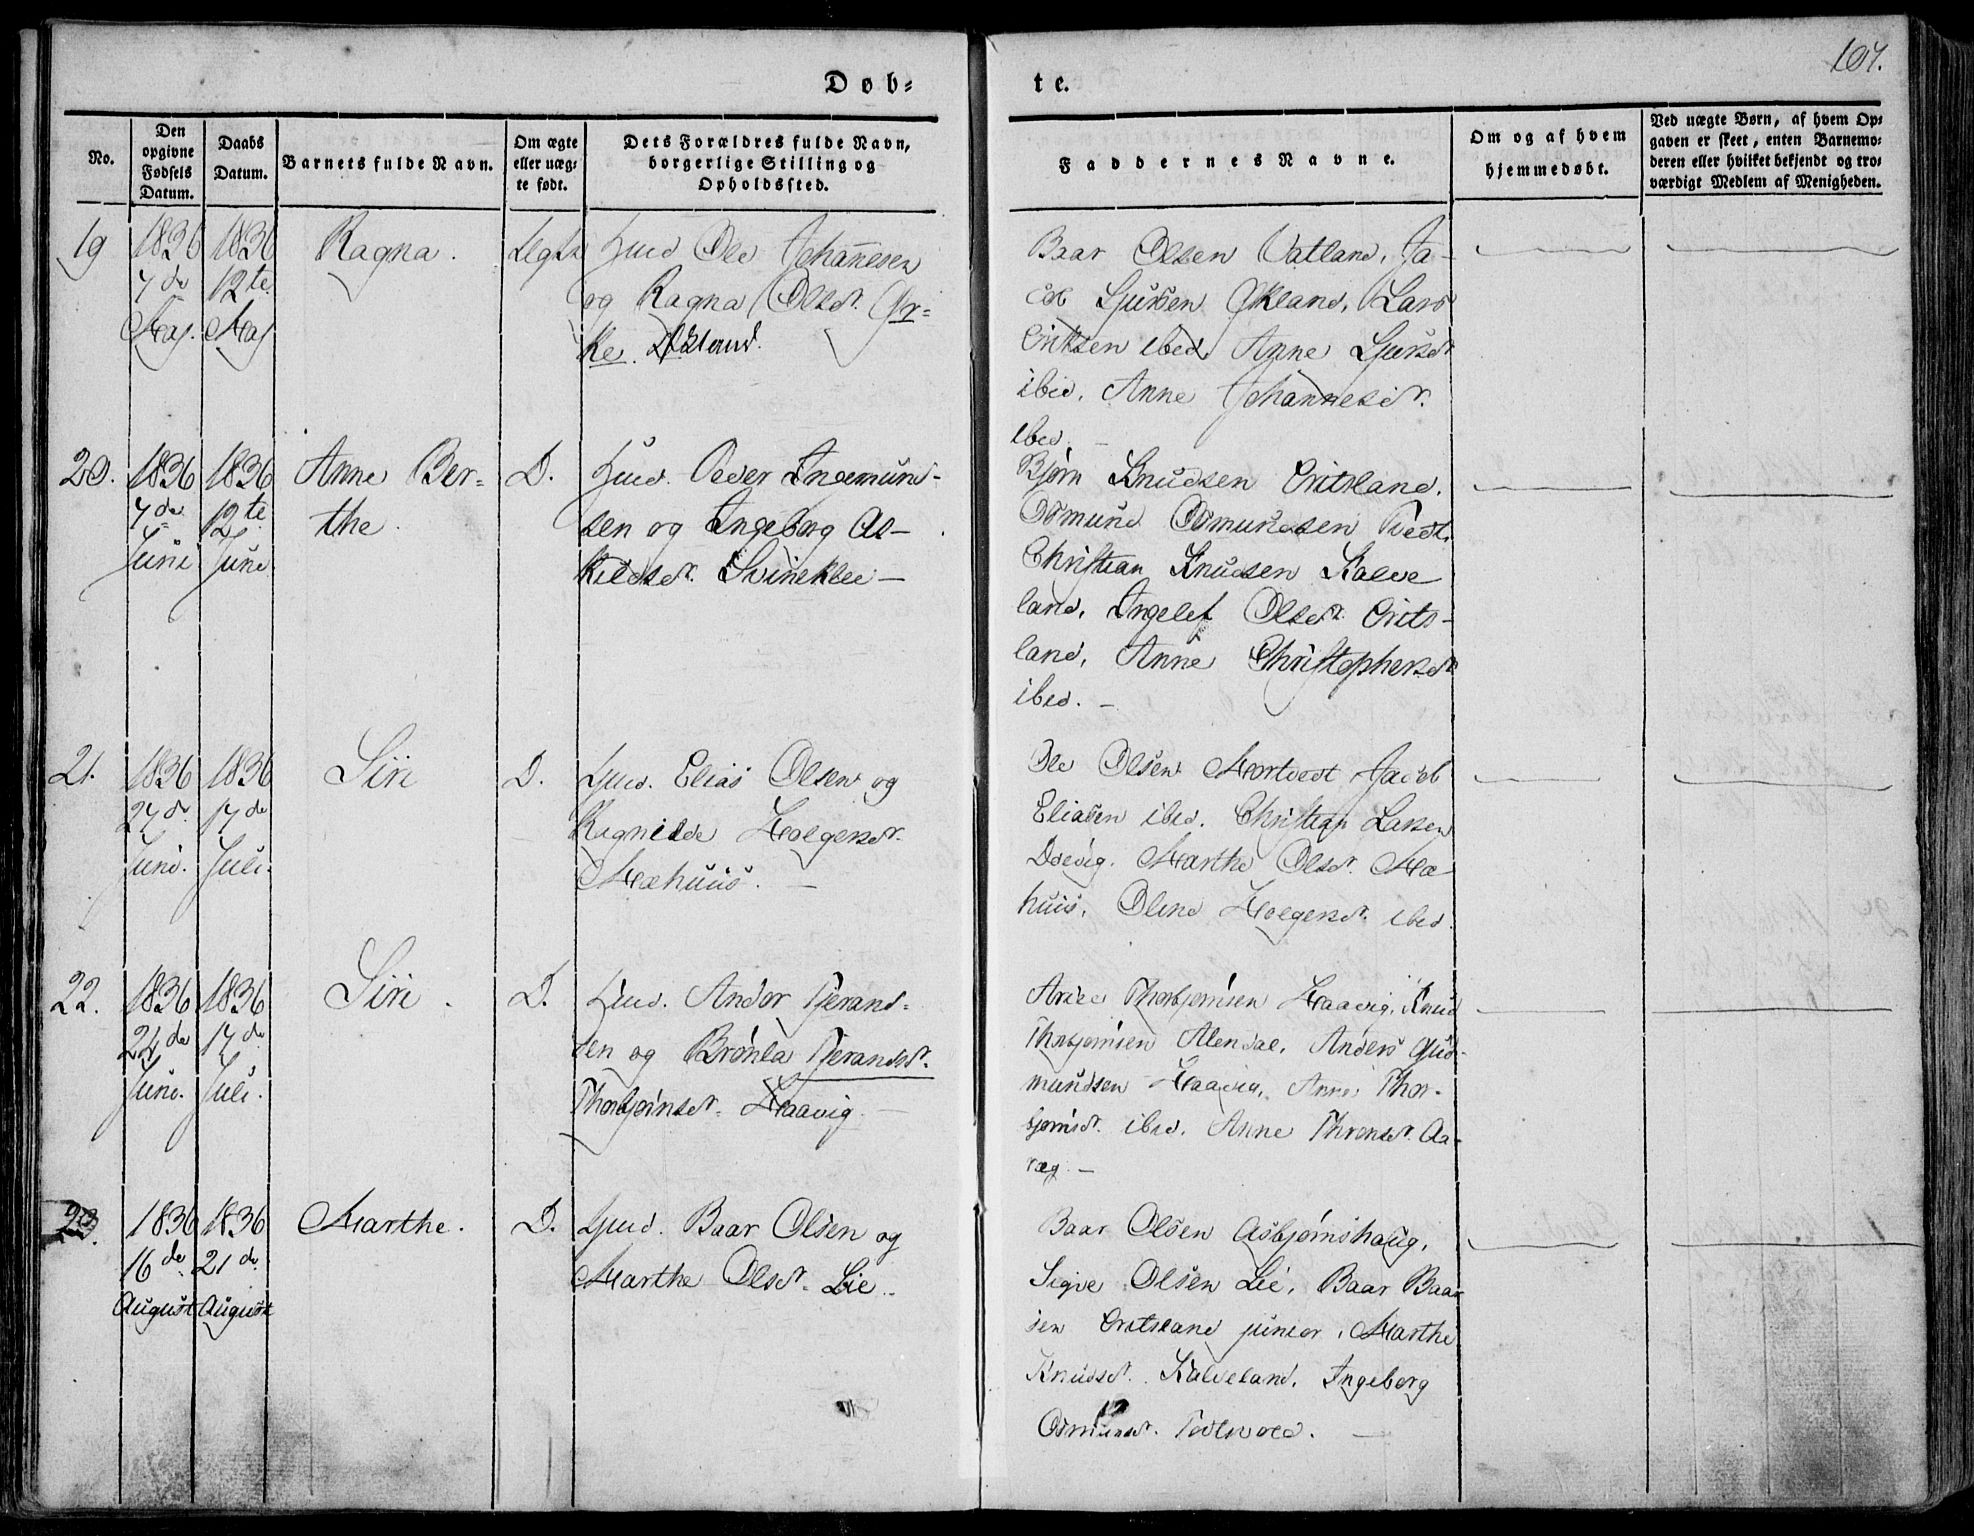 107.
Døb=
te.
No.
Den opgivne Fødsels Datum.
Daabs Datum.
Barnets fulde Navn.
Om ægte eller uæg= te født.
Dets Forældres fulde Navn, borgerlige Stilling og Opholdssted.
Faddernes Navne.
Om og af hvem hjemmedøbt.
Ved uægte Børn, af hvem Op= gaven er skeet, enten Barnemo= deren eller hvilket bekjendt og tro= værdigt Medlem af Menigheden.
19
1836
7de
Maj.
1836
12te
Maj
Ragna.
Ægte
Huusd Ole Johannesen
og Ragna Olsdr.
Økland.
Baar Olsen Vatland, Ja-
cob Sjursen Økland, Lars
Eriksen ibed, Anne Sjursdr
ibid, Anne Johannesdr.
ibed. -
20.
1836
7de
Juni
1836
12te
Juni
Anne Ber=
the.
D.
Peder Ingemund-
sen og Ingeborg As-
kildsdr. Svineklei -
Bjørn Knudsen Eritsland,
Osmund Osmundsen Tvedt,
Christian Knudsen Kalve
land, Ingelef Olsdr. Erits-
land, Anne Christophersdr
ibed. -
21.
1836
27de
Juni.
1836
17de
Juli.
Siri
D.
Elias Olsen og
Ragnilde Holgersdr.
Mæhuus. -
Ole Olsen Mortvedt, Jacob
Eliasen ibed. Christian Larsen
Dovig. Marthe Olsdr. Mæ
huus, Oline Holgersdr. ibed.
22.
1836
24de
Juni.
1836
17de
Juli.
Siri.
D.
Andor Tjerand=
sen og Brønla Tjerandsdr.
Thorbjørnsdr. Haavig -
Thorbjørnsen Haavig, Knud
Thorbjørnsen Alendal, Anders Gud-
mundsen Haavig, Anne Thor-
bjørnsdr. ibed. Anne Aa-
ræg. -
23.
1836
16de
August
1836
21de
August
Marthe.
D.
Baar Olsen og
Marthe Olsdr. Lie.
Baar Olsen Asbjørnshaug,
Sigve Olsen Lie, Baar Baar
sen Eritsland junior, Marthe
Knudsdr. Kalveland, Ingeborg
Osmundsdr.